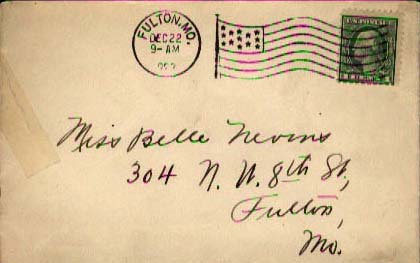 FULTON, MO.
DEC 22
9-AM
Miss Belle Nevins
304 N. W. 8th St,
Fulton,
Mo.